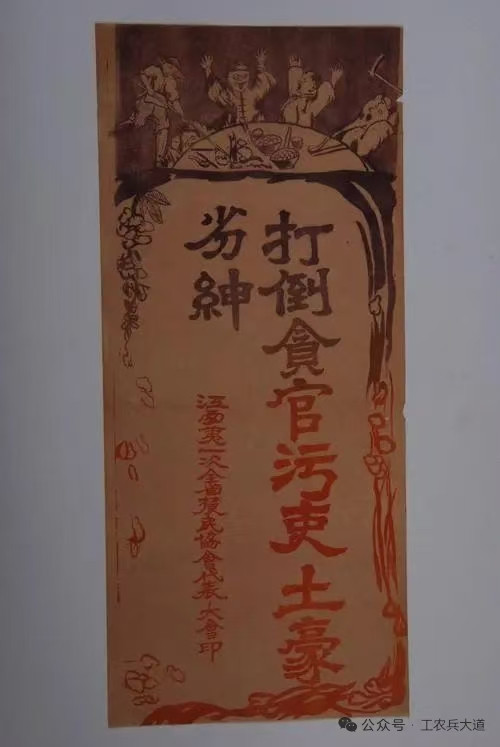 打倒貪官污吏土豪
劣紳
江西第一次全省農民協會代表大會印
公众号 · 工农兵大道